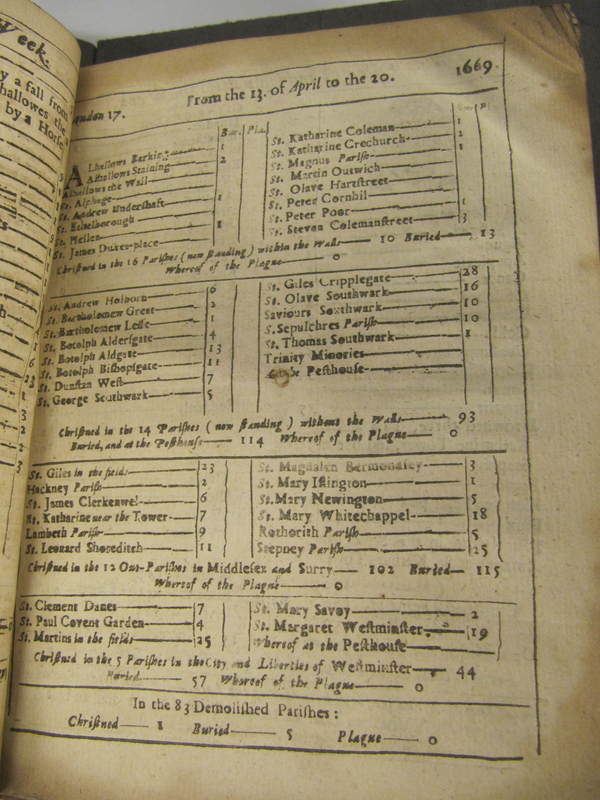 Week.
y a fall from
hallowes the
by a Horse
London 17. From the 13. of April to the 20. 1669.
Bur. Pla.
Alhallows Barking 1
Alhallows Staining 2
Alhallows the Wall
St. Alphage
St. Andrew Undershaft 1
St. Ethelborough
St. Hellen 1
St. James Dukes-place
St. Katharine Coleman 1
St. Katharine Creechurch 2
St. Magnus Parish 1
St. Martin Outwich
St. Olave Hartstreet
St. Peter Cornhil 1
St. Peter Poor
St. Steven Colemanstreet 3
Christned in the 16 Parishes (now standing) within the Walls 10 Buried 13
Whereof of the Plague 0
St. Andrew Holborn 6
St. Bartholomew Great 2
St. Bartholomew Lesse 1
St. Botolph Aldersgate 4
St. Botolph Aldgate 13
St. Botolph Bishopsgate 11
St. Dunstan West 7
St. George Southwark 5
St. Giles Cripplegate 28
St. Olave Southwark 16
Saviours Southwark 10
S. Sepulchres Parish 10
St. Thomas Southwark 1
Trinity Minories
Pesthouse
Christned in the 14 Parishes (now standing) without the Walls 93
Buried, and at the Pesthouse 114 Whereof of the Plague 0
St. Giles in the fields 23
Hackney Parish 2
St. James Clerkenwel 6
St. Katharine near the Tower 7
Lambeth Parish 9
St. Leonard Shoreditch 11
St. Magdalen Bermondsey 3
St. Mary Islington 1
St. Mary Newington 5
St. Mary Whitechappel 18
Rothorith Parish 5
Stepney Parish 25
Christned in the 12 Out-Parishes in Middlesex and Surry 102 Buried 115
Whereof of the Plague 0
St. Clement Danes 7
St. Paul Covent Garden 4
St. Martins in the fields 25
St. Mary Savoy 2
St. Margaret Westminster 19
Whereof at the Pesthouse
Christned in the 5 Parishes in the City and Liberties of Westminster 44
Buried 57 Whereof of the Plague 0
In the 83 Demolished Parishes:
Christned 1 Buried 5 Plague 0